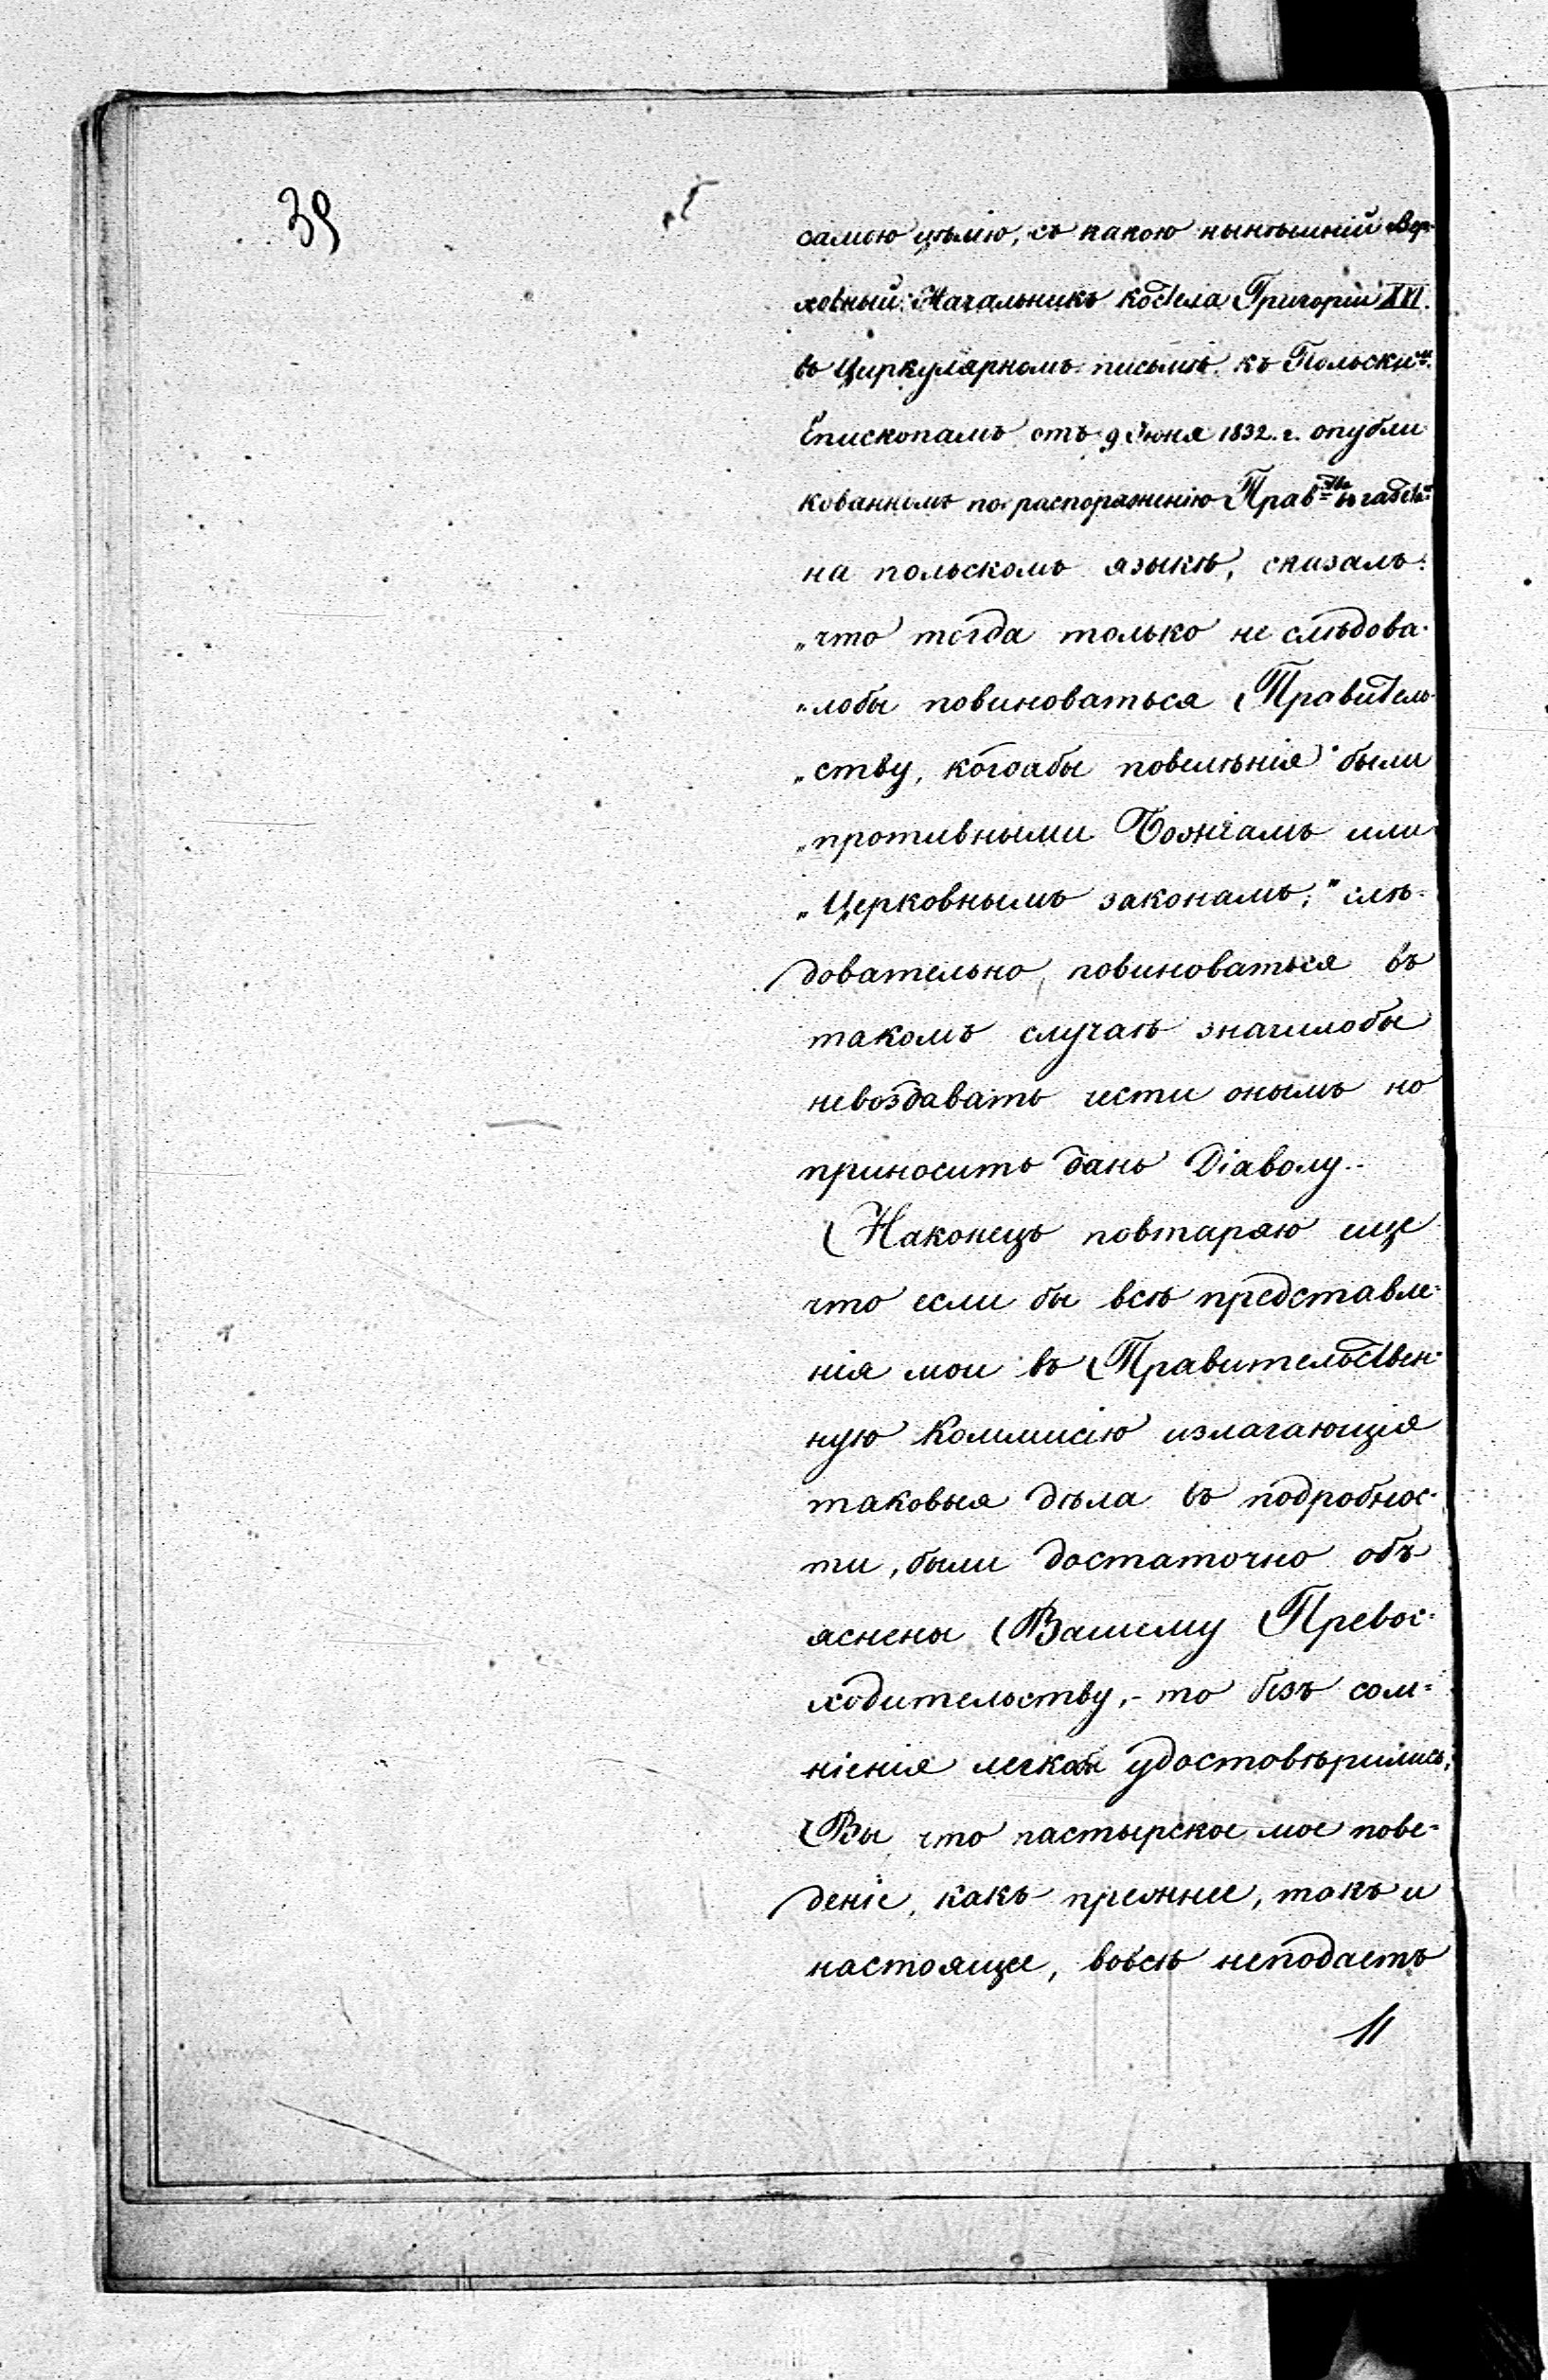 39
самою цѣлію, съ какою нынѣшній Вер-
ховный Начальникъ костела Григорій XVI.
въ Циркулярномъ письмѣ къ Польским
Епископамъ отъ 9 Іюня 1832. г. опубли
кованномъ по распоряженію Прав=
на польскомъ языкѣ, сказалъ:
„что тогда только не слѣдова-
„лобы повиноваться Правитель-
„ству, когдабы повелѣнія были
„противными Божіамъ или
„Церковнымъ законамъ;" слѣ-
довательно, повиноваться въ
такомъ случаѣ значилобы
невоздавать чести онымъ но
приносить дань Діаволу.
Наконецъ повтаряю еще
что если бы всѣ представле-
нія мои въ Правительствен-
ную Коммисію излагающія
таковыя дѣла въ подробнос-
ти, были достаточно объ
яснены Вашему Превос-
ходительству,- то безъ сом=
нѣнія легкобъ удостовѣрились,
Вы что пастырское мое пове-
деніе, какъ прежнее, такъ и
настоящее, вовсѣ неподаетъ
11